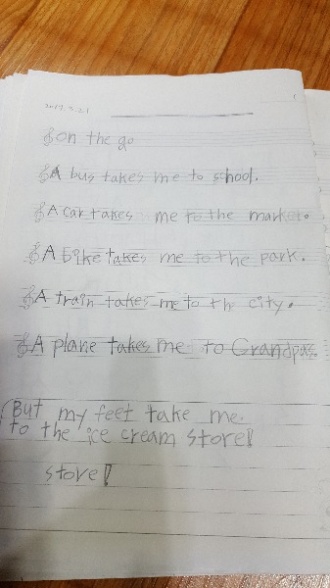 2017.5.21
On the go
A bus takes me to shool.
A car takes me to the market.
A bike takes me to the park.
A train takes me to th city.
A plane takes me to Grandpas.
But my feet take me
to the ice cream store!
store!